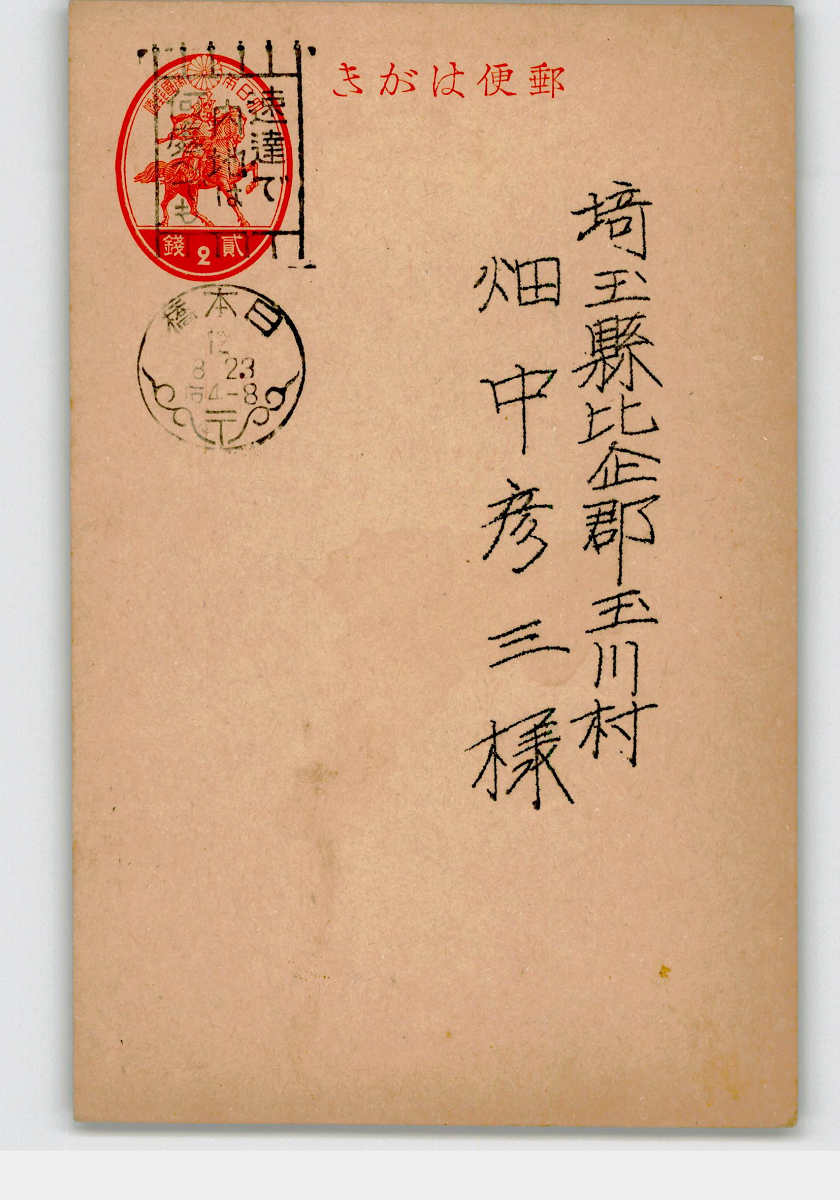 郵便はがき
埼玉縣比企郡玉川村
畑中彦三様
大日本帝國郵便
貳銭
2
速達で
内地は
何處でも
日本橋
12
8 23
后4-8